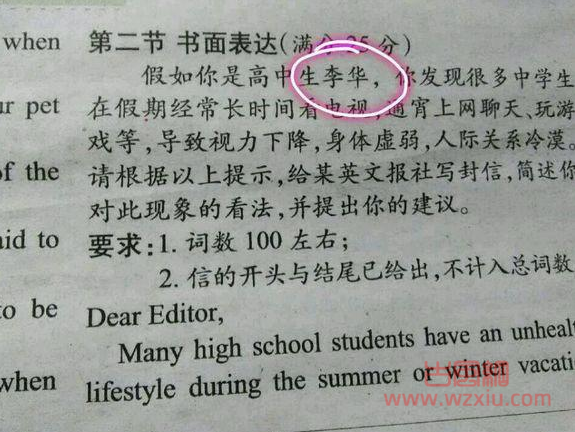 when
ur pet
of the
aid to
to be
when
第二节 书面表达(满分 分)
假如你是高中生李华,你发现很多中学生
在假期经常长时间看电视,通宵上网聊天、玩游
戏等,导致视力下降,身体虚弱,人际关系冷漠。
请根据以上提示,给某英文报社写封信,简述你
对此现象的看法,并提出你的建议。
要求:1. 词数 100 左右;
2. 信的开头与结尾已给出,不计入总词数
Dear Editor,
Many high school students have an unhealt
lifestyle during the summer or winter vacati
www.wzxiu.com